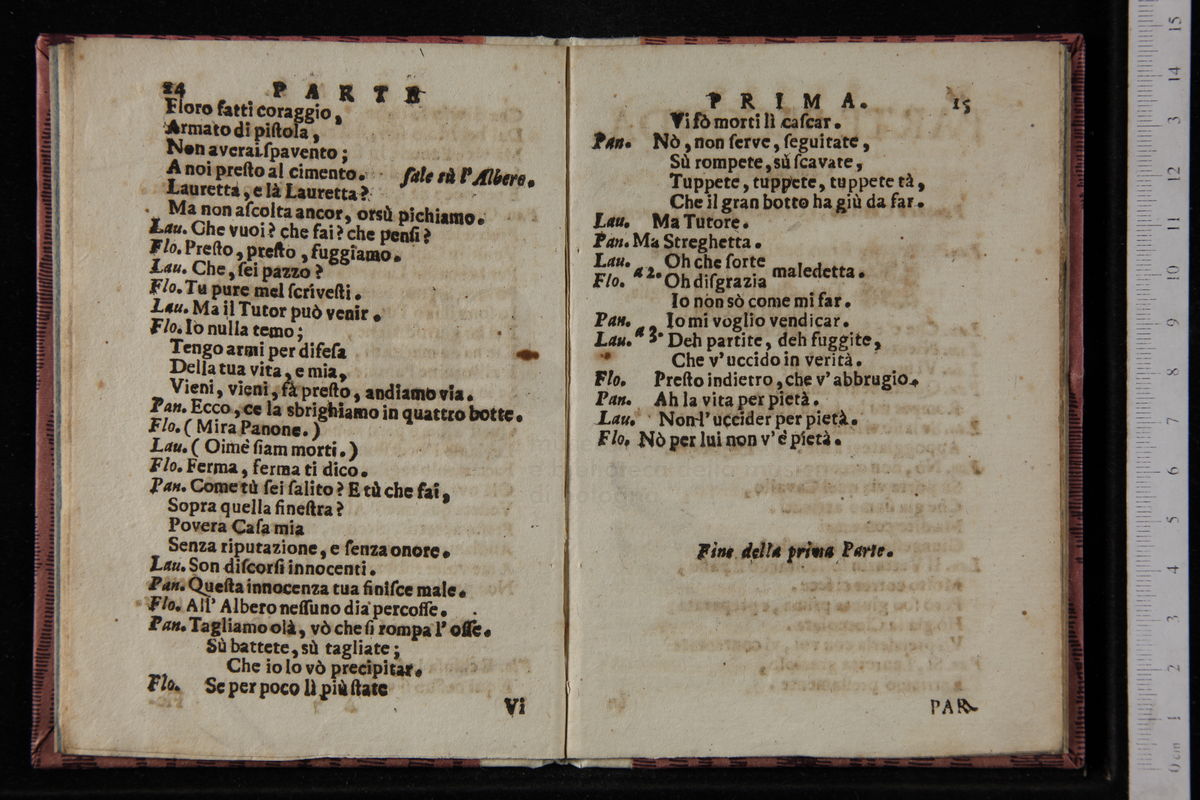 24 PARTE
Floro fatti coraggio,
Armato di piſtola,
Non averai ſpavento;
A noi preſto al cimento. ſale sù l'Albero.
Lauretta, e là Lauretta?
Ma non aſcolta ancor, orsù pichiamo.
Lau. Che vuoi? che fai? che penſi?
Flo. Preſto, preſto, fuggiamo.
Lau. Che, ſei pazzo?
Flo. Tu pure mel ſcriveſti.
Lau. Ma il Tutor può venir.
Flo. Io nulla temo;
Tengo armi per difeſa
Della tua vita, e mia,
Vieni, vieni, fà preſto, andiamo via.
Pan. Ecco, ce la sbrighiamo in quattro botte.
Flo. (Mira Panone.)
Lau. (Oimè ſiam morti.)
Flo. Ferma, ferma ti dico.
Pan. Come tù ſei ſalito? E tù che fai,
Sopra quella fineſtra?
Povera Caſa mia
Senza riputazione, e ſenza onore.
Lau. Son diſcorſi innocenti.
Pan. Queſta innocenza tua finiſce male.
Flo. All' Albero neſſuno dia percoſſe.
Pan. Tagliamo olà, vò che ſi rompa l'oſſe.
Sù battete, sù tagliate;
Che io lo vò precipitar.
Flo. Se per poco lì più ſtate
Vi
PRIMA. 15
Vi fò morti lì caſcar.
Pan. Nò, non ſerve, ſeguitate,
Sù rompete, sù ſcavate,
Tuppete, tuppete, tuppete tà,
Che il gran botto ha giù da far.
Lau. Ma Tutore.
Pan. Ma Streghetta.
Lau. Oh che ſorte
Flo. a 2. Oh diſgrazia maledetta.
Io non sò come mi far.
Pan. Io mi voglio vendicar.
Lau. a 3. Deh partite, deh fuggite,
Che v'uccido in verità.
Flo. Preſto indietro, che v'abbrugio.
Pan. Ah la vita per pietà.
Lau. Non l'uccider per pietà.
Flo. Nò per lui non v'è pietà.
Fine della prima Parte.
PAR-
0 cm 1 2 3 4 5 6 7 8 9 10 11 12 3 14 15